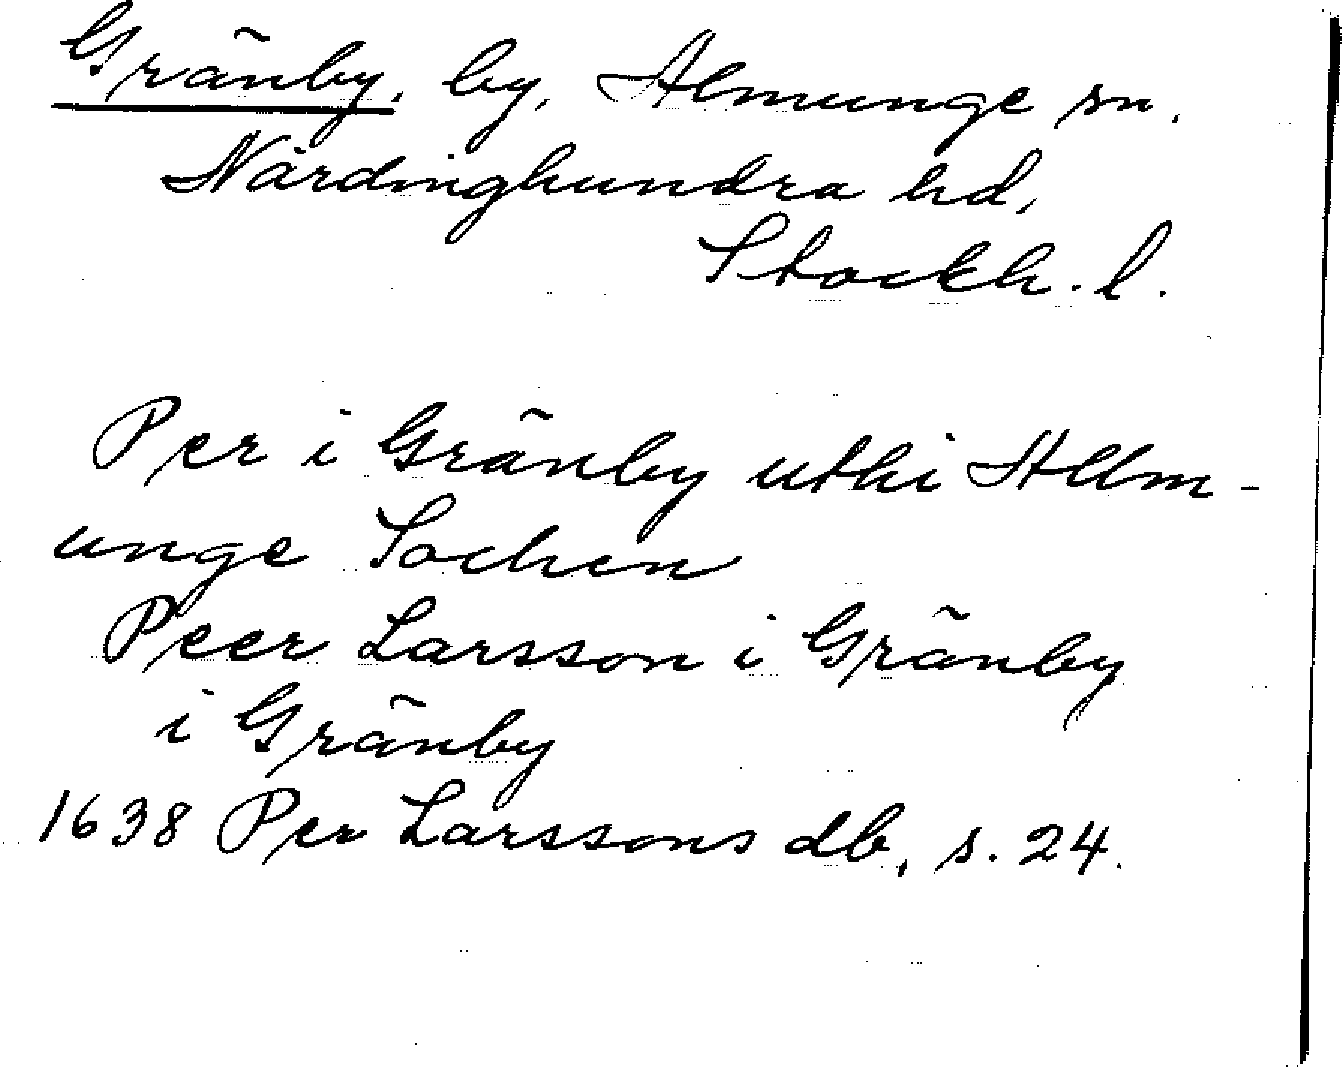 Gränby, by, Almunge sn.
Närdinghundra hd,
Stockh. l.
Per i Gränby uthi Allm-
unge Sochen
Peer Larsson i Gränby
i Gränby
1638 Per Larssons db, s. 24.